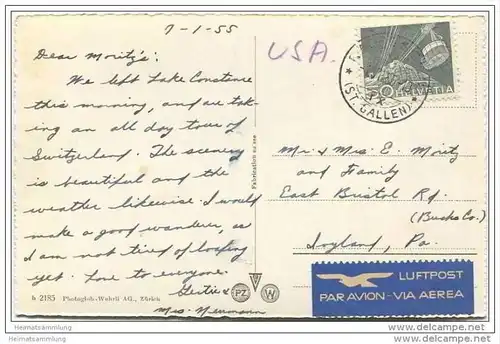 7-1-55
Dear Moritz's:
We left Lake Constance
this morning, and are tak-
ing an all day tour of
Switzerland. The scenery
is beautiful and the
weather likewise. I would
make a good wanderer, as
I am not tired of loafing
yet. Love to everyone.
Gertie &
Mrs. Neumann
h 2185 Photoglob-Wehrli AG., Zürich
PZ
W
Fabrication suisse
USA.
ST. GALLEN
50 HELVETIA
Mr. & Mrs. E. Moritz
and Family
East Bristol Rd.
(Bucks Co.)
Ivyland, Pa.
LUFTPOST
PAR AVION - VIA AEREA
Heimatsammlung
www.delcampe.net